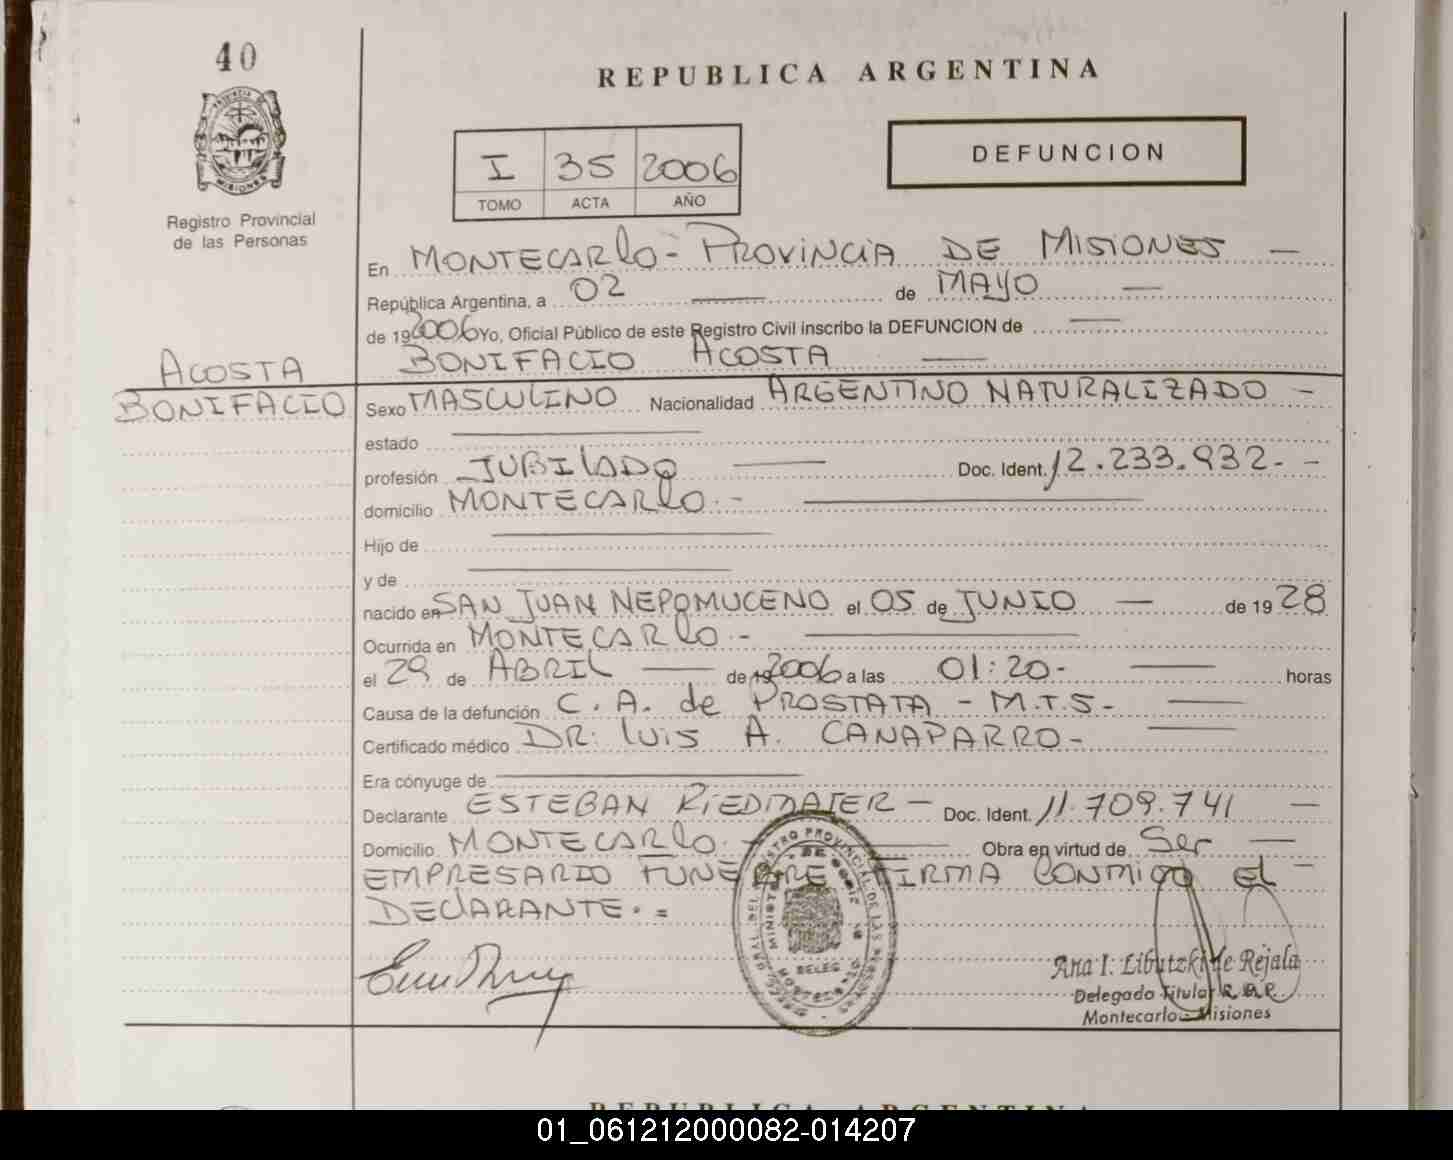 40
REPUBLICA ARGENTINA
I 35 2006
TOMO ACTA AÑO
DEFUNCION
PROVINCIA DE
MISIONES
Registro Provincial
de las Personas
En MONTECARLO - PROVINCIA DE MISIONES —
República Argentina, a 02 — de MAYO —
de 19 2006 Yo, Oficial Público de este Registro Civil inscribo la DEFUNCION de —
ACOSTA BONIFACIO ACOSTA —
BONIFACIO Sexo MASCULINO Nacionalidad ARGENTINO NATURALIZADO -
estado —
profesión JUBILADO — Doc. Ident. 12.233.932- -
domicilio MONTECARLO.- —
Hijo de —
y de —
nacido en SAN JUAN NEPOMUCENO el 05 de JUNIO — de 19 28
Ocurrida en MONTECARLO.- —
el 29 de ABRIL — de 19 2006 a las 01:20- — horas
Causa de la defunción C. A. de PROSTATA - M.T.S- —
Certificado médico DR: LUIS A. CANAPARRO- —
Era cónyuge de —
Declarante ESTEBAN RIEDMAIER — Doc. Ident. 11.709.741 —
Domicilio MONTECARLO.- — Obra en virtud de Ser —
EMPRESARIO FUNEBRE FIRMA CONMIGO EL -
DECLARANTE. =
REGISTRO PROVINCIAL DE LAS
MONTECARLO
Ana I. Libutzki de Rejala
Delegada Titular R.P.P.
Montecarlo - Misiones
REPUBLICA ARGENTINA
01_061212000082-014207